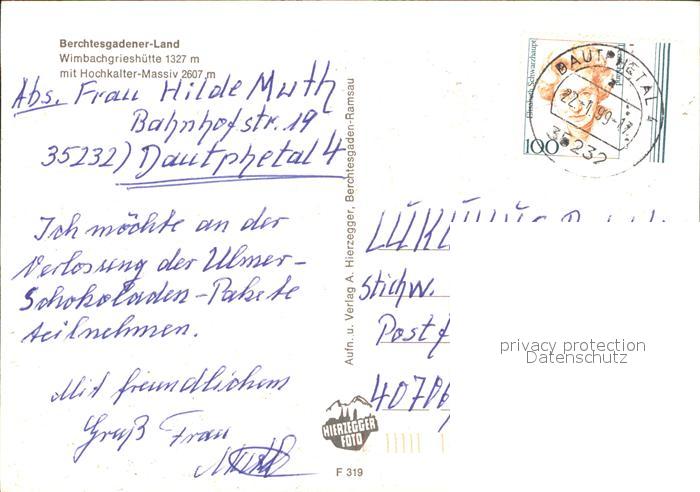 Berchtesgadener-Land
Wimbachgrieshütte 1327 m
mit Hochkalter-Massiv 2607 m
Abs. Frau Hilde Muth
Bahnhofstr. 19
35232) Dautphetal 4
Ich möchte an der
Verlosung der Ulmer-
Schokoladen-Pakete
teilnehmen.
Mit freundlichem
Gruß Frau
Muth
Aufn. u. Verlag A. Hierzegger, Berchtesgaden-Ramsau
HIERZEGGER
FOTO
F 319
Elisabeth Schwarzhaupt
100
DAUTPHETAL 4
35232
Stichw.
Postf
40706
privacy protection
Datenschutz